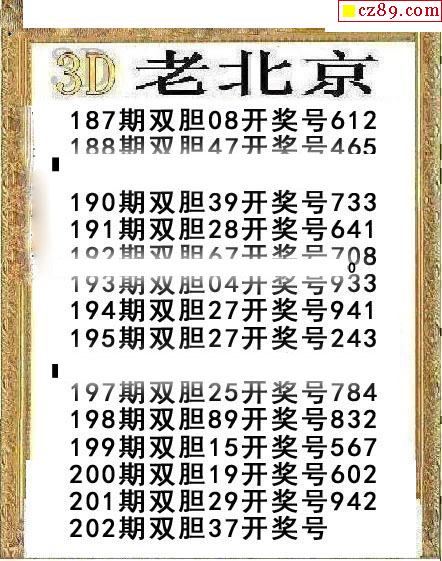 cz89.com
3D 老北京
187期双胆08开奖号612
188期双胆47开奖号465
190期双胆39开奖号733
191期双胆28开奖号641
192期双胆67开奖号708
0
193期双胆04开奖号933
194期双胆27开奖号941
195期双胆27开奖号243
197期双胆25开奖号784
198期双胆89开奖号832
199期双胆15开奖号567
200期双胆19开奖号602
201期双胆29开奖号942
202期双胆37开奖号